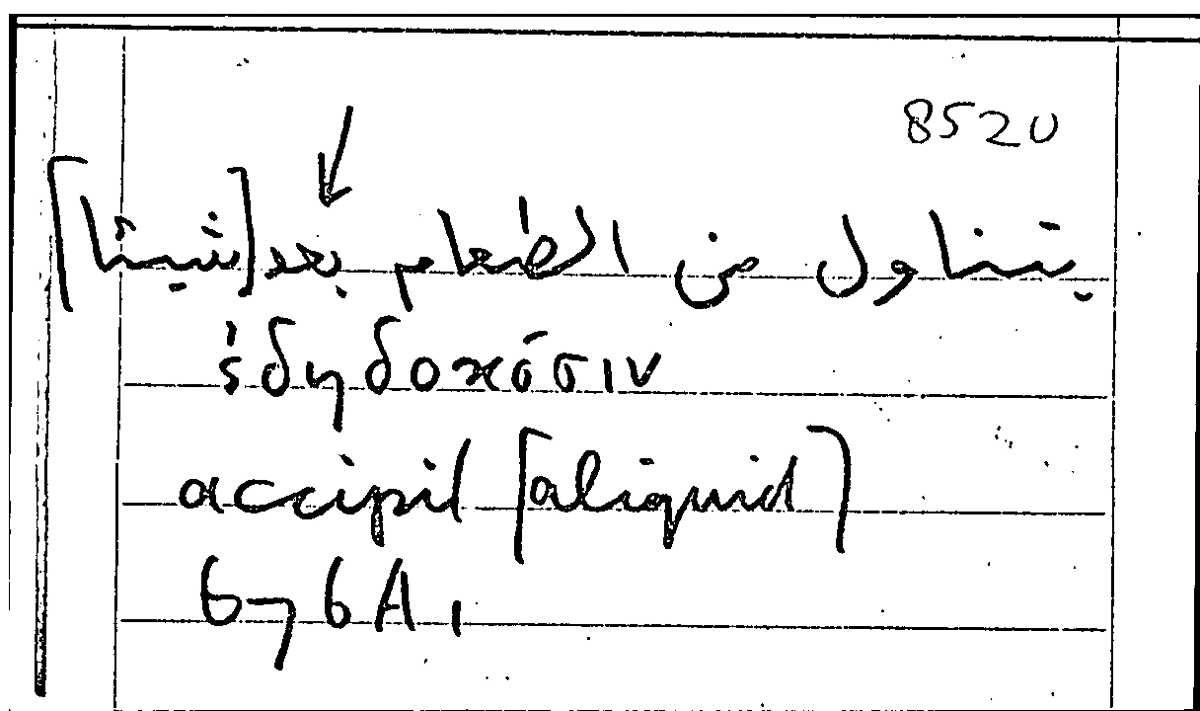 8520
يتناول من الطعام بعد [شيئا]
ἐδηδοκόσιν
accipit [aliquid]
676A1